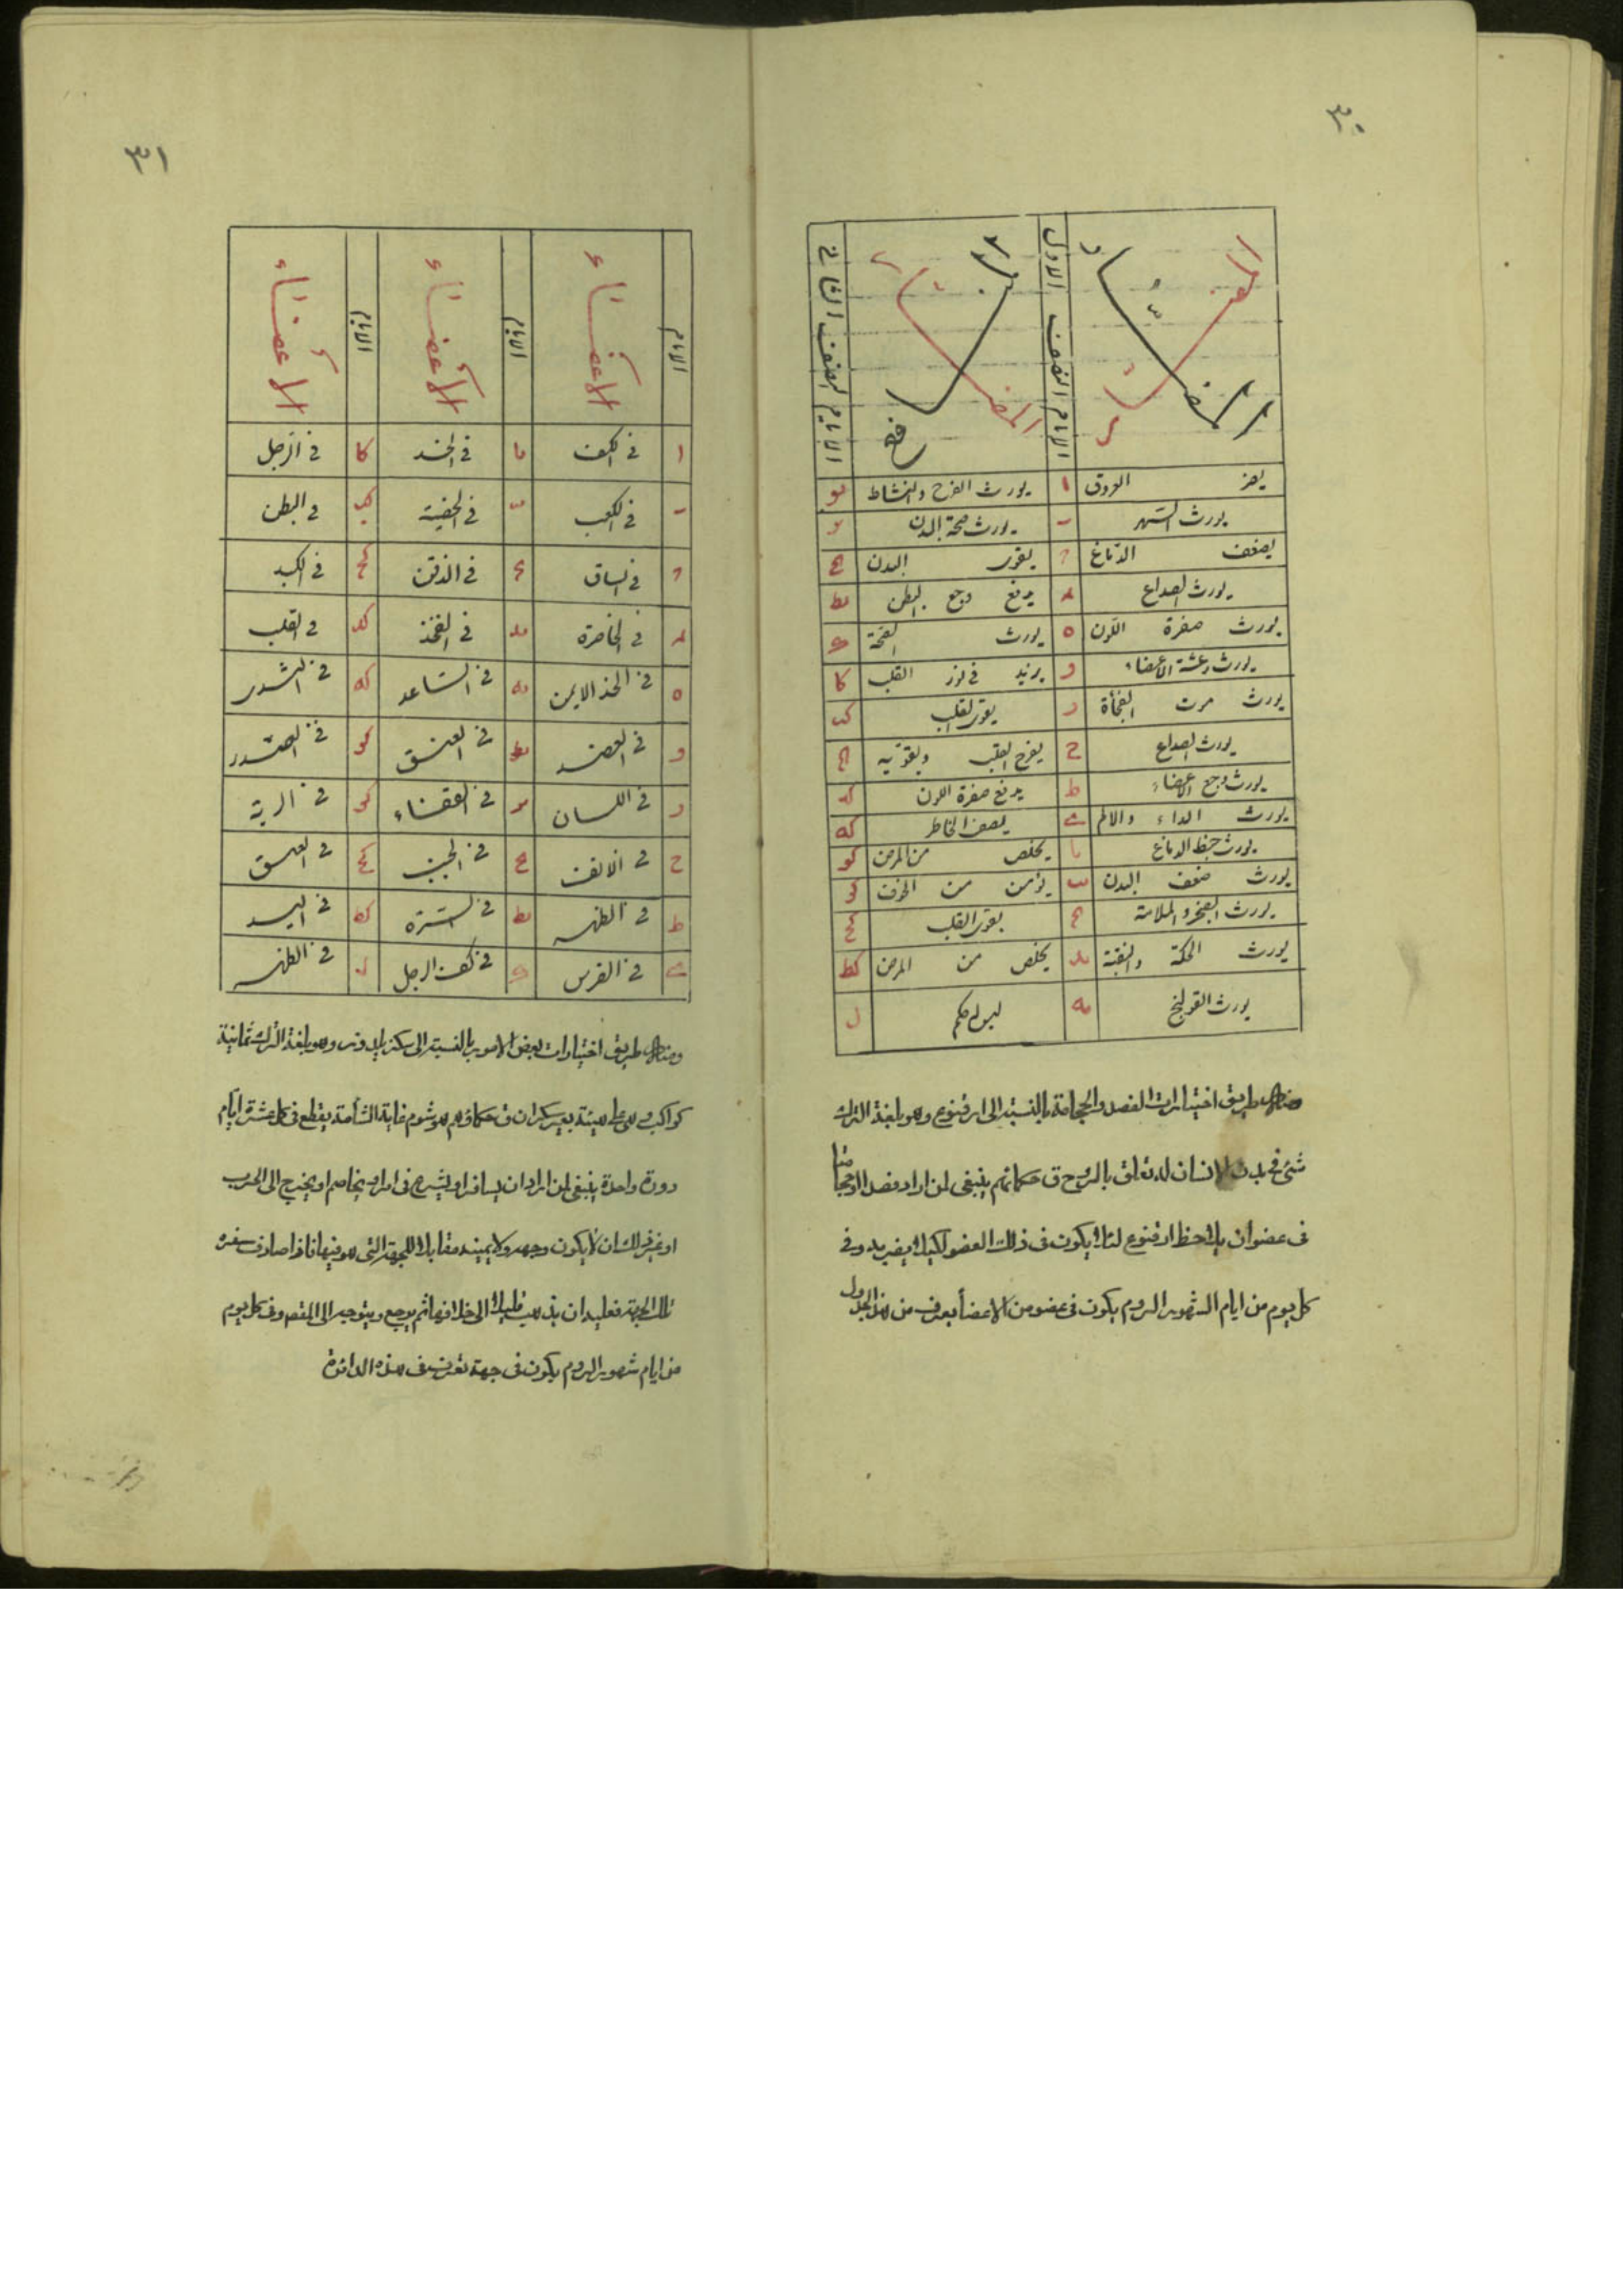 ٣٠
المضار
المنافع
الايام النصف الاول
الايام النصف الثاني
يضر العروق ا يورث الفرح والنشاط يو
يورث السهر ب يورث صحة البدن يز
يضعف الدماغ ج يقوى البدن يح
يورث الصداع د يدفع وجع البطن يط
يورث صفرة اللون ه يورث الصحة ك
يورث رعشة الاعضاء و يزيد في نور القلب كا
يورث موت الفجأة ز يقوى القلب كب
يورث الصداع ح يفرح القلب ويقويه كج
يورث وجع الاعضاء ط يدفع صفرة اللون كد
يورث الداء والالم ى يصفى الخاطر كه
يورث حفظ الدماغ يا يخلص من المرض كو
يورث ضعف البدن يب يؤمن من الخوف كز
يورث الضجر والملامة يج يقوى القلب كح
يورث الحكة يد يخلص من المرض كط
يورث القولنج يه ل
ومنها طريق اختيارات الفصد والحجامة بالنسبة الى ارقنوع وهو بلغة الترك
شئ في بدن الانسان له تعلق بالروح ق حكمائهم ينبغى لمن اراد فصدا او حجامتا
فى عضو ان يلاحظ ارقنوع لئلا يكون فى ذلك العضو لكيلا يضر به وفى
كل يوم من ايام الشهور الروم يكون فى عضو من الاعضأ يعرف من هذا الجدول
٣١
الايام الأعضاء الايام الأعضاء الايام الأعضاء
ا في الكف يا في الخد كا في الرجل
ب في الكعب يب كب في البطن
ج في الساق يج في الذقن كج في الكبد
د في الخاصرة يد في الفخذ كد في القلب
ه في الخد الايمن يه في الساعد كه في الثدى
و في العضد يو في العنق كو في الصدر
ز في اللسان يز في القفاء كز في الرية
ح في الانف يح في الجبين كح في العنق
ط في الظهر يط في السرة كط في اليد
ى في الضرس ك في كف الرجل ل في الظهر
ومنها طريق اختيارات بعض الامور بالنسبة الى سكز يلدوز وهو بلغة الترك ثمانية
كواكب وهى على هيئة بعير سكران ق حكماؤهم هو شوم غاية الشأمة يقطع فى كل عشرة ايام
دورة واحدة ينبغى لمن اراد ان يسافر او يشرع فى امر او يخاصم او يخرج الى الحرب
او غير ذلك ان لا يكون وجهه ولا يمينه مقابلا للجهة التى هو فيها فاذا صادف سفره
تلك الجهة فعليه ان يذهب قليلا الى خلافها ثم يرجع ويتوجه الى المقصد وفى كل يوم
من ايام شهور الروم يكون فى جهة تعرف فى هذه الدائرة